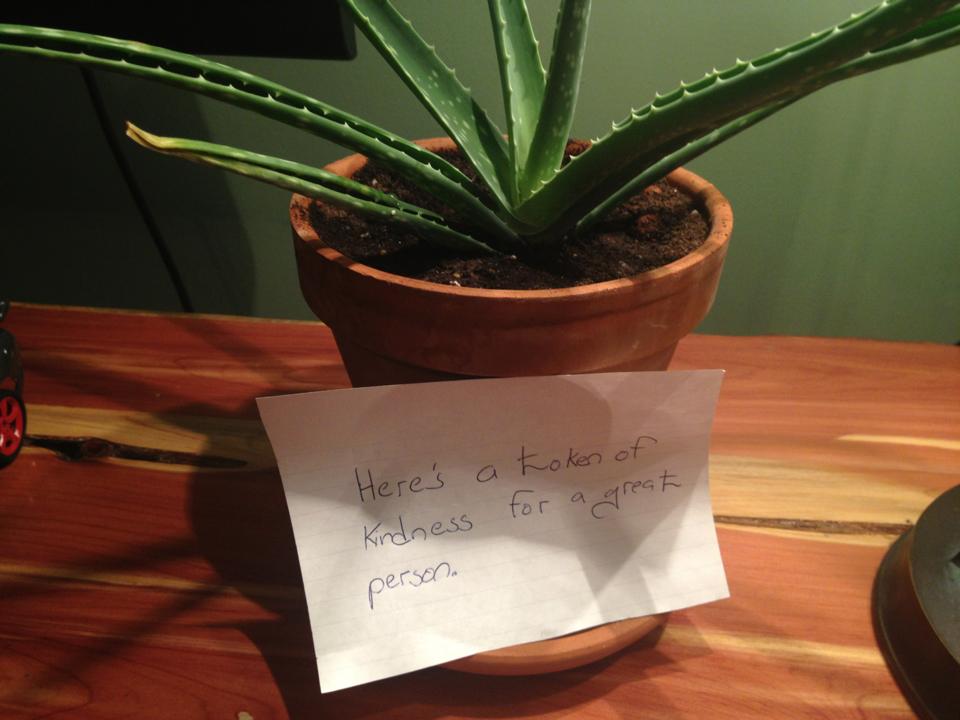 Here's a token of
Kindness for a great
person.